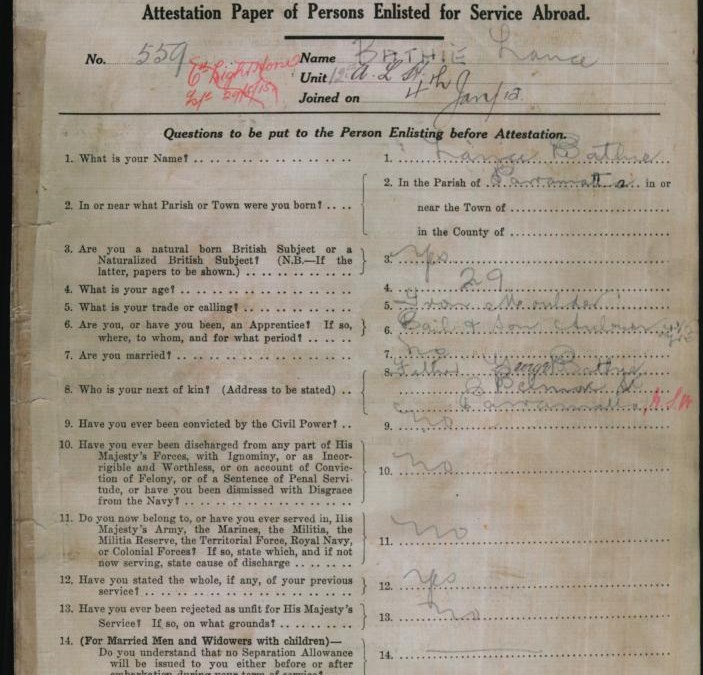 Attestation Paper of Persons Enlisted for Service Abroad.
No. 559 Name BATHIE Lance
6th Light Horse Unit 12th A. L. H.
Joined on 4th Jan/15
Questions to be put to the Person Enlisting before Attestation.
1. What is your Name? 1. Lance Bathie
2. In or near what Parish or Town were you born? 2. In the Parish of Parramatta in or
near the Town of
in the County of
3. Are you a natural born British Subject or a
Naturalized British Subject? (N.B.—If the
latter, papers to be shown.) 3. Yes
4. What is your age? 4. 29
5. What is your trade or calling? 5. Iron Moulder
6. Are you, or have you been, an Apprentice? If so,
where, to whom, and for what period? 6. & Son
7. Are you married? 7. No
8. Who is your next of kin? (Address to be stated) 8. Father George Bathie
St
Parramatta, N.S.W
9. Have you ever been convicted by the Civil Power? 9. No
10. Have you ever been discharged from any part of His
Majesty's Forces, with Ignominy, or as Incor-
rigible and Worthless, or on account of Convic-
tion of Felony, or of a Sentence of Penal Servi-
tude, or have you been dismissed with Disgrace
from the Navy? 10. No
11. Do you now belong to, or have you ever served in, His
Majesty's Army, the Marines, the Militia, the
Militia Reserve, the Territorial Force, Royal Navy,
or Colonial Forces? If so, state which, and if not
now serving, state cause of discharge 11. No
12. Have you stated the whole, if any, of your previous
service? 12. Yes
13. Have you ever been rejected as unfit for His Majesty's
Service? If so, on what grounds? 13. No
14. (For Married Men and Widowers with children)—
Do you understand that no Separation Allowance
will be issued to you either before or after
embarkation during your term of service? 14.